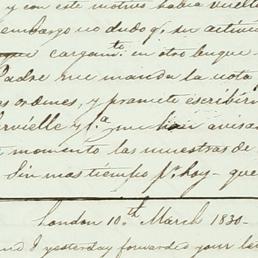 y con este motivo habia vuelto
embargo no dudo q. su activi
que cargam.to en otro buque
Padre me manda la nota
as ordenes, y promete escribir
ervielle y C.a me han avisa
momento las muestras de
Sin mas tiempo p.r hoy - que
London 10.th March 1830.
and I yesterday forwarded your le